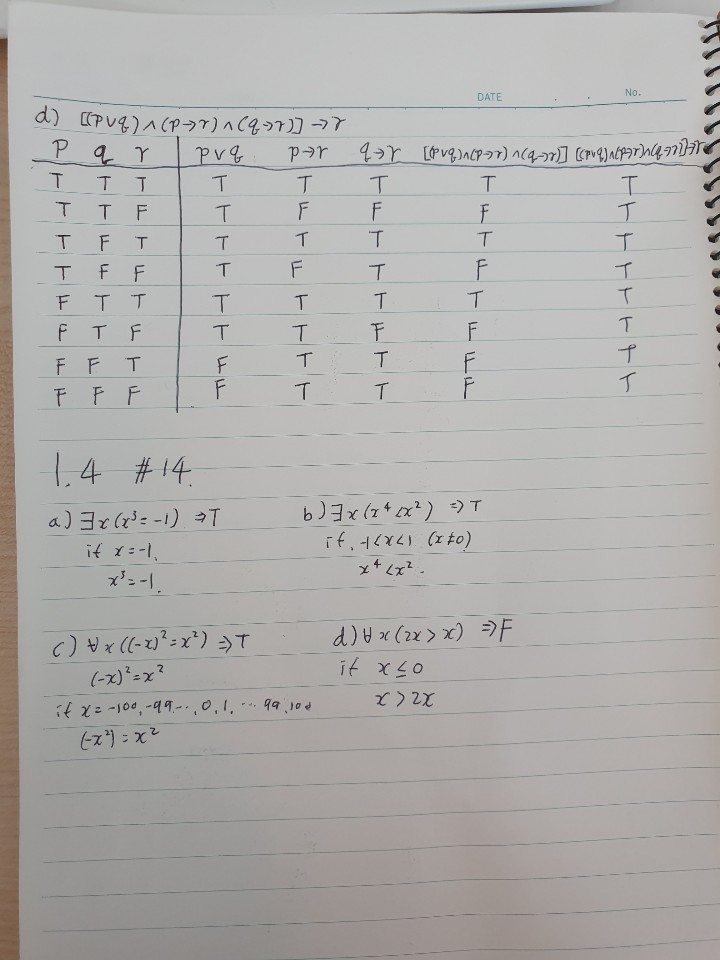 DATE . . No.
d) [(p∨q)∧(p→r)∧(q→r)]→r
p q r p∨q p→r q→r [(p∨q)∧(p→r)∧(q→r)] [(p∨q)∧(p→r)∧(q→r)]→r
T T T T T T T T
T T F T F F F T
T F T T T T T T
T F F T F T F T
F T T T T T T T
F T F T T F F T
F F T F T T F T
F F F F T T F T
1.4 #14.
a) ∃x(x³=-1) ⇒T
if x=-1,
x³=-1.
b) ∃x(x⁴<x²) ⇒T
if, -1<x<1 (x≠0)
x⁴<x².
c) ∀x((-x)²=x²) ⇒T
(-x)²=x²
if x=-100,-99…,0,1,…99,100
(-x²)=x²
d) ∀x(2x>x) ⇒F
if x≤0
x>2x